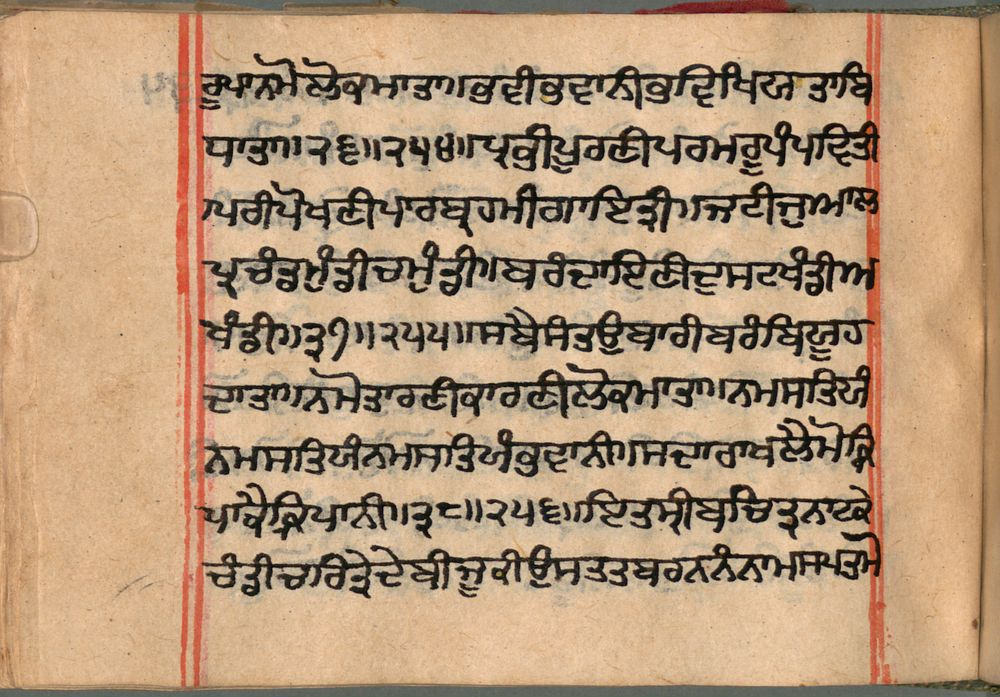 ਰੂਪਾਨਮੋਲੋਕਮਾਤਾ॥ਭਵੀਭਵਾਨੀਭਵਿਖਿਅਤਾਬਿ
ਧਾਤਾ॥੩੬॥੨੫੪॥ਪ੍ਰਭੀਪੂਰਣੀਪਰਮਰੂਪੰਪਵਿਤ੍ਰੀ
॥ਪਰੀਪੋਖਣੀਪਾਰਬ੍ਰਹਮੀਗਾਇਤ੍ਰੀ॥ਜਟੀਜੁਆਲ
ਪ੍ਰਚੰਡਮੁੰਡੀਚਮੁੰਡੀ॥ਬਰੰਦਾਇਣੀਦੁਸਟਖੰਡੀਅ
ਖੰਡੀ॥੩੭॥੨੫੫॥ਸਬੈਸੰਤਉਬਾਰੀਬਰੰਬਿਯੂਹ
ਦਾਤਾ॥ਨਮੋਤਾਰਣੀਕਾਰਣੀਲੋਕਮਾਤਾ॥ਨਮਸਤਿਯੰ
ਨਮਸਤਿਯੰਨਮਸਤਿਯੰਭਵਾਨੀ॥ਸਦਾਰਾਖਲੈਮੋਕ੍ਰਿ
ਪਾਕੈਕ੍ਰਿਪਾਨੀ॥੩੮॥੨੫੬॥ਇਤਸ੍ਰੀਬਚਿਤ੍ਰਨਾਟਕੇ
ਚੰਡੀਚਰਿਤ੍ਰੇਦੇਬੀਜੂਕੀਉਸਤਤਬਰਨਨੰਨਾਮਸਪਤਮੋ